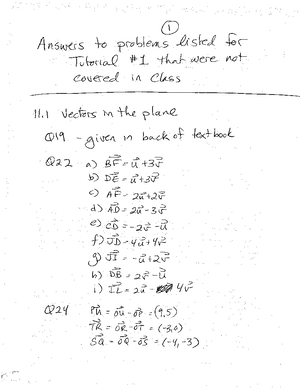 1
Answers to problems listed for
Tutorial #1 that were not
covered in class
11.1 Vectors in the plane
Q19 - given in back of textbook
Q22 a) BF⃗ = u⃗ + 3v⃗
b) DE⃗ = u⃗ + 3v⃗
c) AF⃗ = 2u⃗ + 2v⃗
d) AD⃗ = 2u⃗ - 3v⃗
e) CD⃗ = -2v⃗ - u⃗
f) JD⃗ = 4u⃗ + 4v⃗
g) JI⃗ = -u⃗ + 2v⃗
h) DB⃗ = 2v⃗ - u⃗
i) IL⃗ = 2u⃗ - 4v⃗
Q24 PU⃗ = OU⃗ - OP⃗ = (9,5)
TR⃗ = OR⃗ - OT⃗ = (-3,0)
SQ⃗ = OQ⃗ - OS⃗ = (-4,-3)